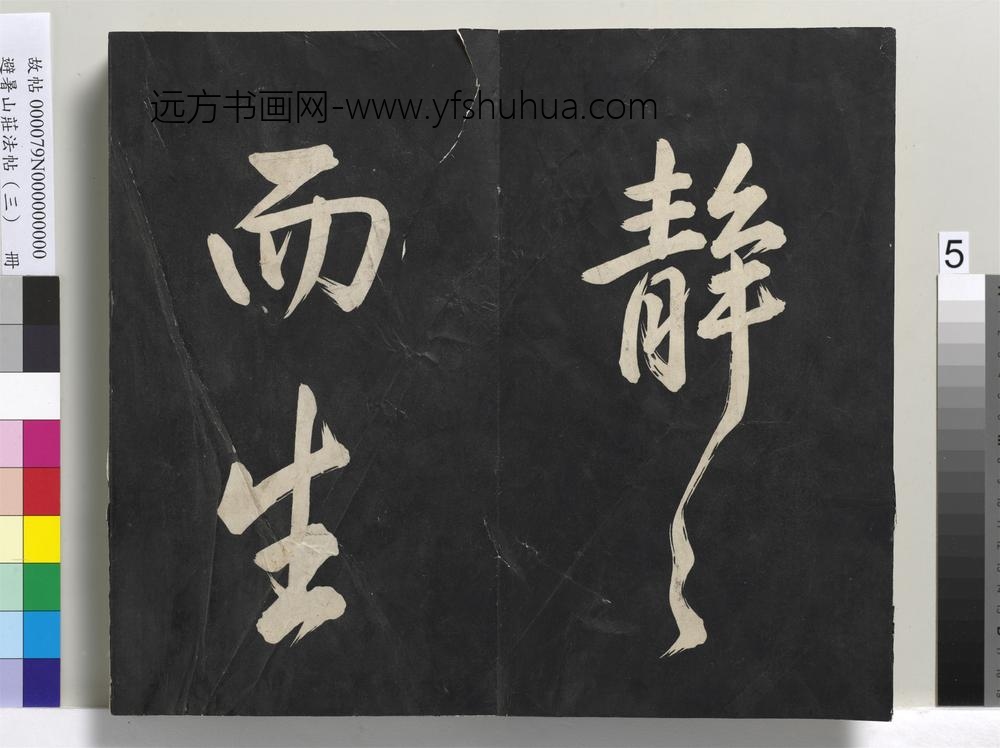 远方书画网-www.yfshuhua.com
静〻
而生
故帖 000079N000000000
避暑山莊法帖（三） 冊
5